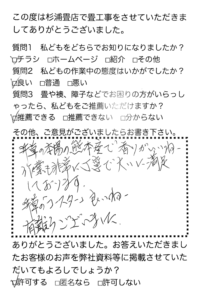 この度は杉浦畳店で畳工事をさせていただきまし
てありがとうございました。
質問1 私どもをどちらでお知りになりましたか?
☑チラシ □ホームページ □紹介 □その他
質問2 私どもの作業中の態度はいかがでしたか?
☑良い □普通 □悪い
質問3 畳や襖、障子などでお困りの方がいらっし
ゃったら、私どもをご推薦いただけますか?
☑推薦できる □推薦できない □分からない
その他、ご意見がございましたらお書き下さい。
本場の熊本産で香りがいいねー
作業も非常に丁寧で大いに満足
しております。
良いねー
有難うございました。
ありがとうございました。お答えいただきまし
たお客様のお声を弊社資料等に掲載させていた
だいてもよろしでしょうか?
☑許可する □匿名なら □許可しない